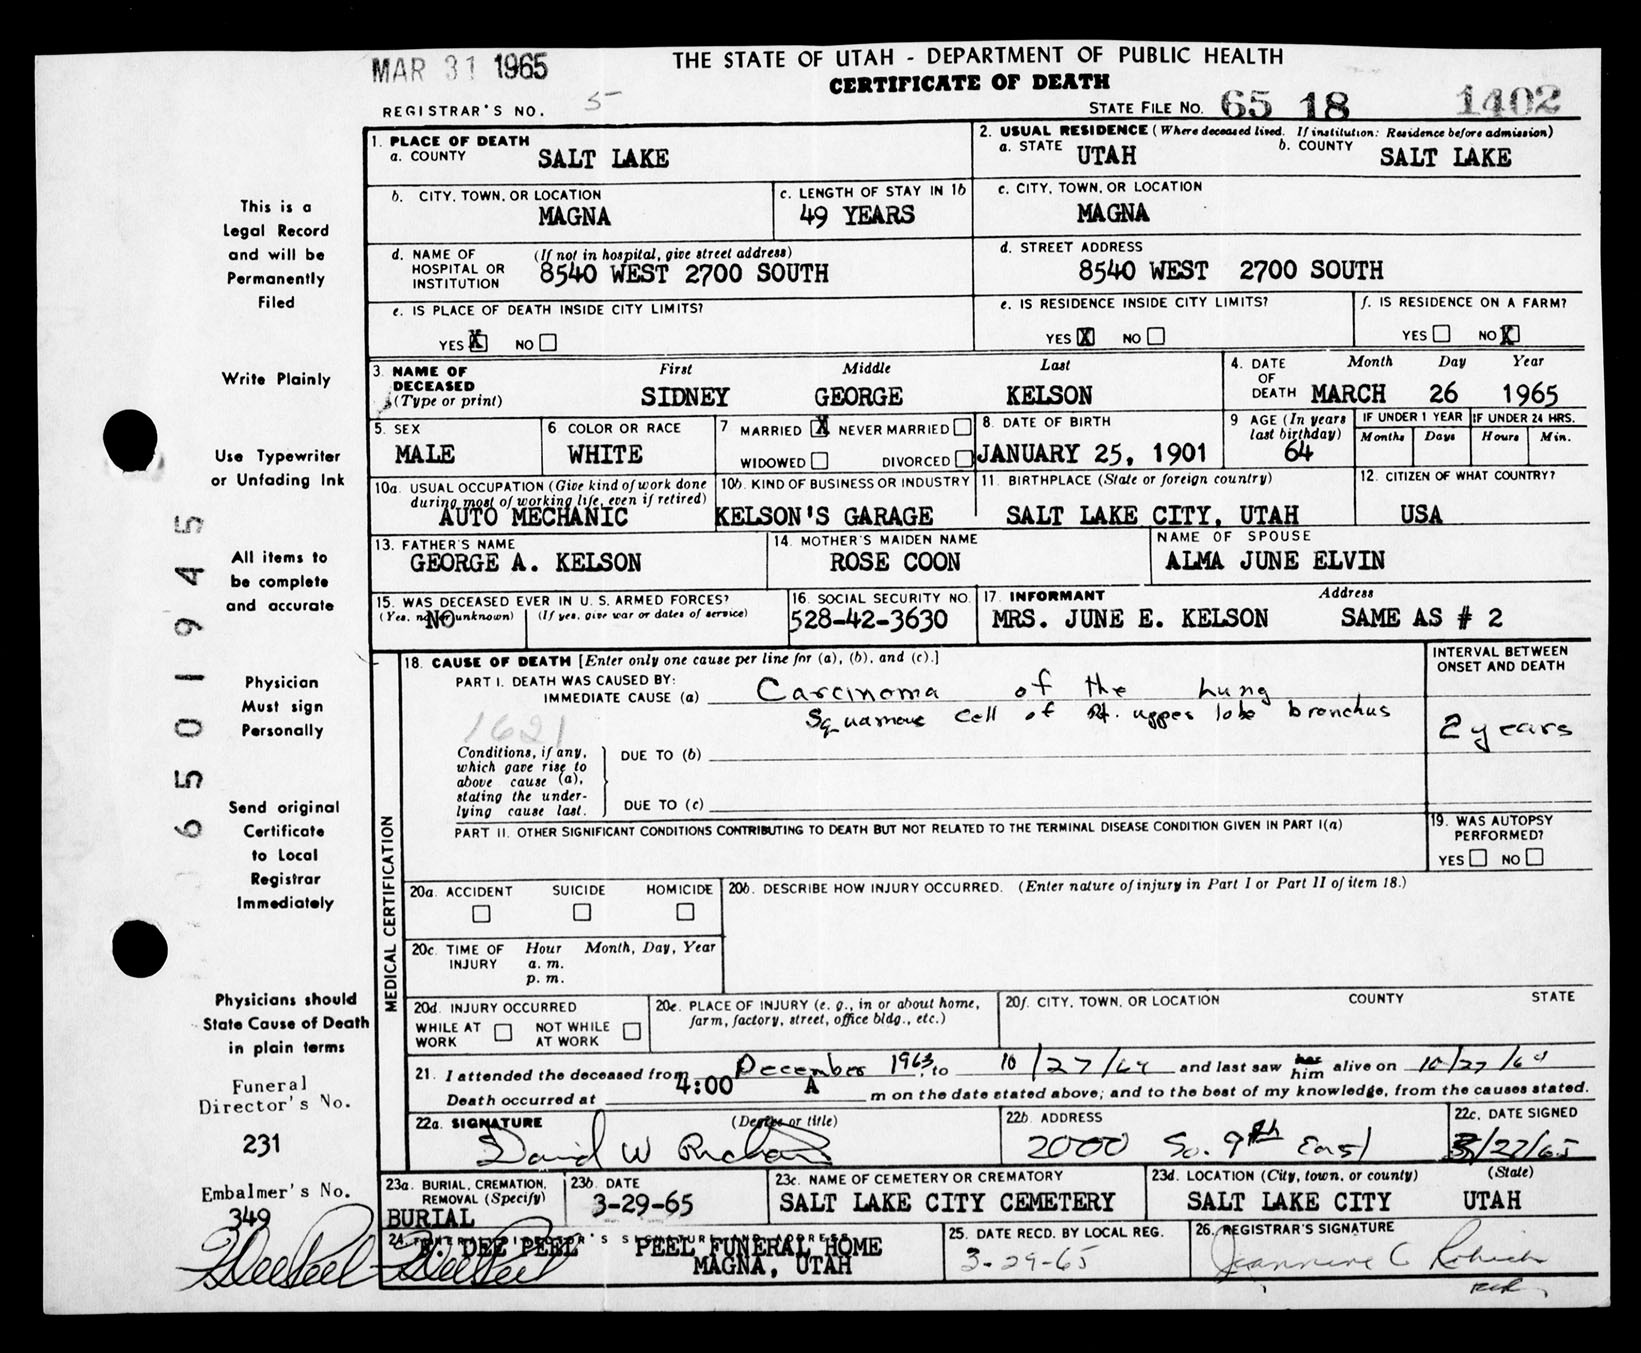 MAR 31 1965
THE STATE OF UTAH - DEPARTMENT OF PUBLIC HEALTH
CERTIFICATE OF DEATH
REGISTRAR'S NO. 5
STATE FILE NO. 65 18 1402
1. PLACE OF DEATH
a. COUNTY SALT LAKE
2. USUAL RESIDENCE (Where deceased lived. If institution: Residence before admission)
a. STATE UTAH b. COUNTY SALT LAKE
b. CITY, TOWN, OR LOCATION MAGNA
c. LENGTH OF STAY IN 1b 49 YEARS
c. CITY, TOWN, OR LOCATION MAGNA
d. NAME OF HOSPITAL OR INSTITUTION (If not in hospital, give street address)
8540 WEST 2700 SOUTH
d. STREET ADDRESS
8540 WEST 2700 SOUTH
e. IS PLACE OF DEATH INSIDE CITY LIMITS?
YES X NO
e. IS RESIDENCE INSIDE CITY LIMITS?
YES X NO
f. IS RESIDENCE ON A FARM?
YES NO X
3. NAME OF DECEASED (Type or print)
First Middle Last
SIDNEY GEORGE KELSON
4. DATE OF DEATH Month Day Year
MARCH 26 1965
5. SEX
MALE
6 COLOR OR RACE
WHITE
7 MARRIED X NEVER MARRIED
WIDOWED DIVORCED
8. DATE OF BIRTH
JANUARY 25, 1901
9 AGE (In years last birthday)
64
IF UNDER 1 YEAR IF UNDER 24 HRS.
Months Days Hours Min.
10a. USUAL OCCUPATION (Give kind of work done
during most of working life, even if retired)
AUTO MECHANIC
10b. KIND OF BUSINESS OR INDUSTRY
KELSON'S GARAGE
11. BIRTHPLACE (State or foreign country)
SALT LAKE CITY, UTAH
12. CITIZEN OF WHAT COUNTRY?
USA
13. FATHER'S NAME
GEORGE A. KELSON
14. MOTHER'S MAIDEN NAME
ROSE COON
NAME OF SPOUSE
ALMA JUNE ELVIN
15. WAS DECEASED EVER IN U.S. ARMED FORCES?
(Yes, no, or unknown) (If yes, give war or dates of service)
NO
16. SOCIAL SECURITY NO.
528-42-3630
17. INFORMANT Address
MRS. JUNE E. KELSON SAME AS # 2
MEDICAL CERTIFICATION
18. CAUSE OF DEATH [Enter only one cause per line for (a), (b), and (c).]
PART I. DEATH WAS CAUSED BY:
IMMEDIATE CAUSE (a) Carcinoma of the Lung
Squamous cell of Rt. upper lobe bronchus
1621
INTERVAL BETWEEN ONSET AND DEATH
2 years
Conditions, if any,
which gave rise to
above cause (a),
stating the under-
lying cause last.
DUE TO (b)
DUE TO (c)
PART II. OTHER SIGNIFICANT CONDITIONS CONTRIBUTING TO DEATH BUT NOT RELATED TO THE TERMINAL DISEASE CONDITION GIVEN IN PART I(a)
19. WAS AUTOPSY PERFORMED?
YES NO
20a. ACCIDENT SUICIDE HOMICIDE
20b. DESCRIBE HOW INJURY OCCURRED. (Enter nature of injury in Part I or Part II of item 18.)
20c. TIME OF INJURY Hour Month, Day, Year
a. m.
p. m.
20d. INJURY OCCURRED
WHILE AT WORK NOT WHILE AT WORK
20e. PLACE OF INJURY (e. g., in or about home,
farm, factory, street, office bldg., etc.)
20f. CITY, TOWN, OR LOCATION COUNTY STATE
21. I attended the deceased from December 1963, to 10/27/64 and last saw her him alive on 10/27/64
Death occurred at 4:00 A m on the date stated above; and to the best of my knowledge, from the causes stated.
22a. SIGNATURE (Degree or title)
David W
22b. ADDRESS
2000 So. 9th East
22c. DATE SIGNED
3/27/65
23a. BURIAL, CREMATION, REMOVAL (Specify)
BURIAL
23b. DATE
3-29-65
23c. NAME OF CEMETERY OR CREMATORY
SALT LAKE CITY CEMETERY
23d. LOCATION (City, town, or county) (State)
SALT LAKE CITY UTAH
24. FUNERAL DIRECTOR'S SIGNATURE AND ADDRESS
F. DEE PEEL PEEL FUNERAL HOME
MAGNA, UTAH
25. DATE RECD. BY LOCAL REG.
3-29-65
26. REGISTRAR'S SIGNATURE
Jeannine C
This is a
Legal Record
and will be
Permanently
Filed
Write Plainly
Use Typewriter
or Unfading Ink
All items to
be complete
and accurate
Physician
Must sign
Personally
Send original
Certificate
to Local
Registrar
Immediately
Physicians should
State Cause of Death
in plain terms
Funeral
Director's No.
231
Embalmer's No.
349
F Dee Peel
F Dee Peel
6501945